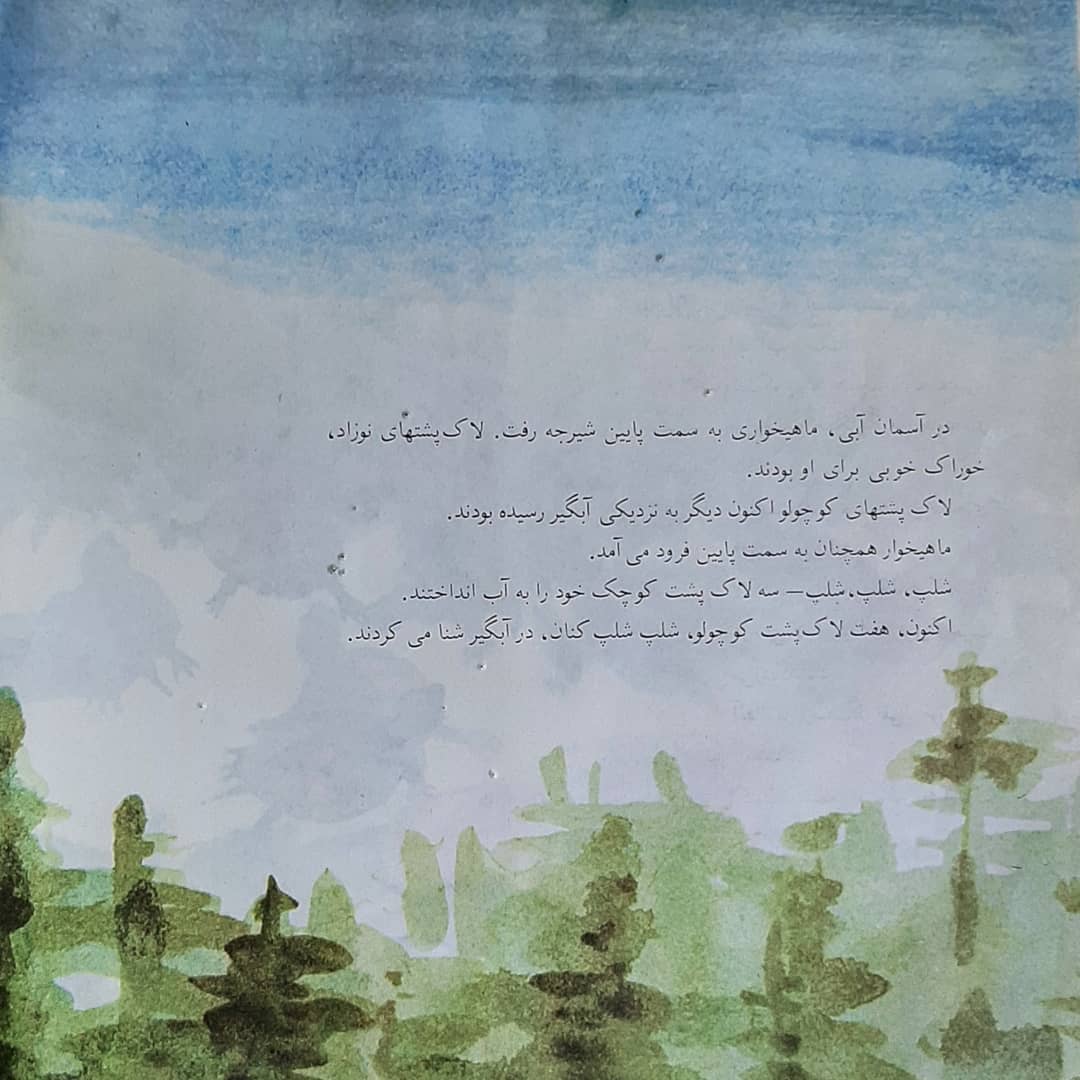 در آسمان آبی، ماهیخواری به سمت پایین شیرجه رفت. لاک‌پشتهای نوزاد،
خوراک خوبی برای او بودند.
لاک پشتهای کوچولو اکنون دیگر به نزدیکی آبگیر رسیده بودند.
ماهیخوار همچنان به سمت پایین فرود می‌آمد.
شلپ، شلپ،شلپ— سه لاک پشت کوچک خود را به آب انداختند.
اکنون، هفت لاک‌پشت کوچولو، شلپ شلپ کنان، در آبگیر شنا می کردند.